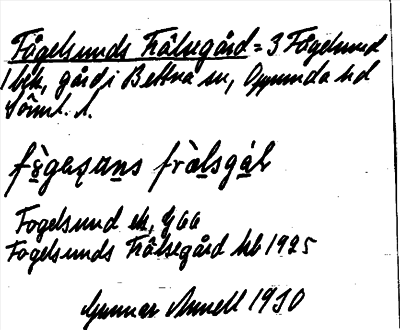 Fågelsunds Frälsegård = 3 Fågelsund
1 bek, gård i Bettna sn, Oppunda hd
Sörml. l.
fògesans fràlsgáɫ
Fogelsund ek, G 66
Fogelsunds Frälsegård hb 1925
Gunnar Annell 1930